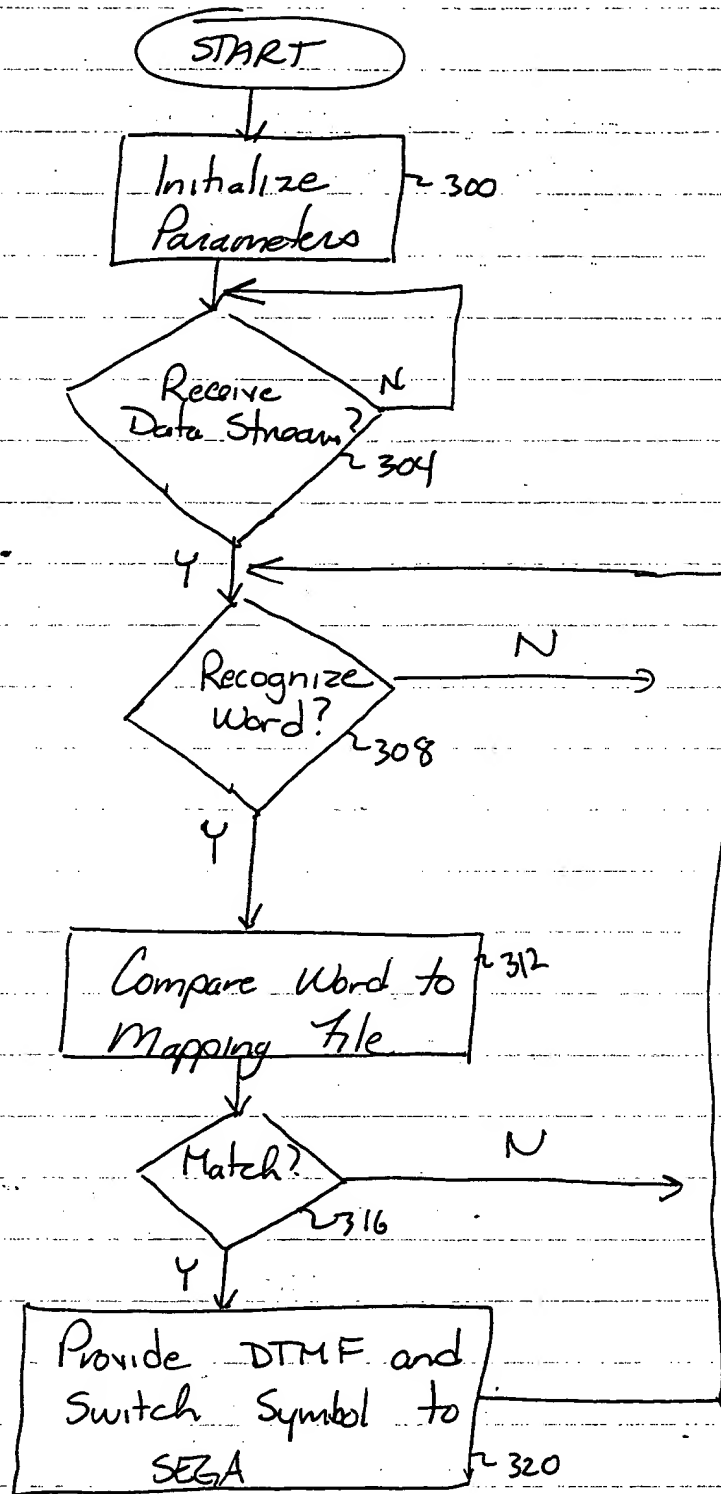 START
Initialize
Parameters
300
Receive
Data Stream?
N
304
Y
Recognize
Word?
N
308
Y
Compare Word to
Mapping File
312
Match?
N
316
Y
Provide DTMF and
Switch Symbol to
SEGA
320